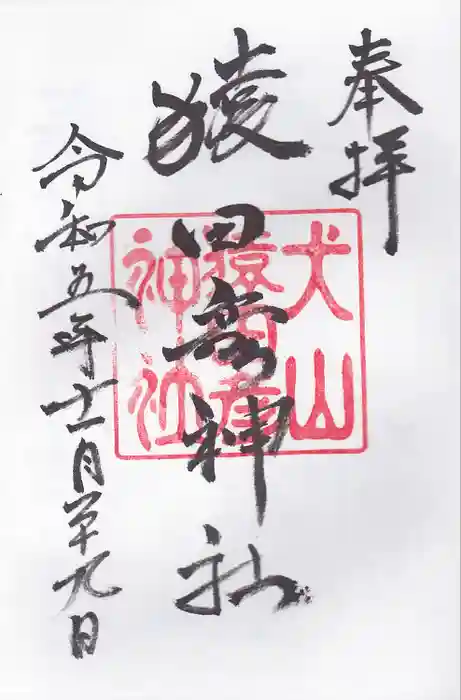 奉拝
猿田彦神社
犬山
猿田彦
神社
令和五年十一月二十九日